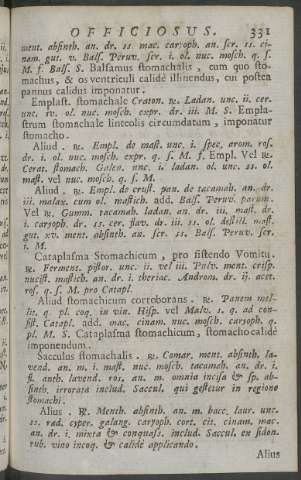 OFFICIOSUS. 331
ment. absinth. an. dr. ss. mac. caryoph. an. scr. ss. ci-
nam. gut. v. Bals. Peruv. scr. i. ol. nuc. mosch. q. s.
M. f. Bals. S. Balsamus stomachalis, cum quo sto-
machus, & os ventriculi calidè illinendus, cui postea
pannus calidus imponatur.
Emplast. stomachale Craton. ℞. Ladan. unc. ii. cer.
unc. iv. ol. nuc. mosch. expr. dr. iii. M. S. Empla-
strum stomachale linteolis circumdatum, imponatur
stomacho.
Aliud. ℞. Empl. de mast. unc. i. spec. arom. ros.
dr. i. ol. nuc. mosch. expr. q. s. M. f. Empl. Vel ℞.
Cerat. stomach. Galen. unc. i. ladan. ol. unc. ss. ol.
mast. vel nuc. mosch. q. s. M.
Aliud. ℞. Empl. de crust. pan. de tacamah. an. dr.
iii. malax. cum ol. mastich. add. Bals. Peruv. parum.
Vel ℞. Gumm. tacamah. ladan. an. dr. iii. mast. dr.
i. caryoph. dr. ss. cer. flav. dr. iii. ss. ol. destill. mast.
gut. xv. ment. absinth. an. scr. ss. Bals. Peruv. scr.
i. M.
Cataplasma Stomachicum, pro sistendo Vomitu.
℞. Ferment. pistor. unc. ii. vel iii. Pulv. ment. crisp.
nucist. mastich. an. dr. i. theriac. Androm. dr. ij. acet.
ros. q. s. M. pro Catapl.
Aliud stomachicum corroborans. ℞. Panem
lit. q. pl. coq. in vin. Hisp. vel Malv. s. q. ad con-
sist. Catapl. add. mac. cinam. nuc. mosch. caryoph. q.
pl. M. S. Cataplasma stomachicum, stomacho calidè
imponendum.
Sacculus stomachalis. ℞. Comar. ment. absinth. la-
vend. an. m. i. mast. nuc. mosch. tacamah. an. dr. i.
st. anth. lavend. ros. an. m. omnia incisa & sp. ab-
sinth. irrorata includ. Saccul. qui gestetur in regione
stomachi.
Alius. ℞. Menth. absinth. an. m. bacc. laur. unc.
ss. rad. cyper. galang. caryoph. cort. cit. cinam. mac.
an. dr. i. mixta & conquass. includ. Saccul. en sidon.
rub. vino incoq. & calidè applicando.
Alius